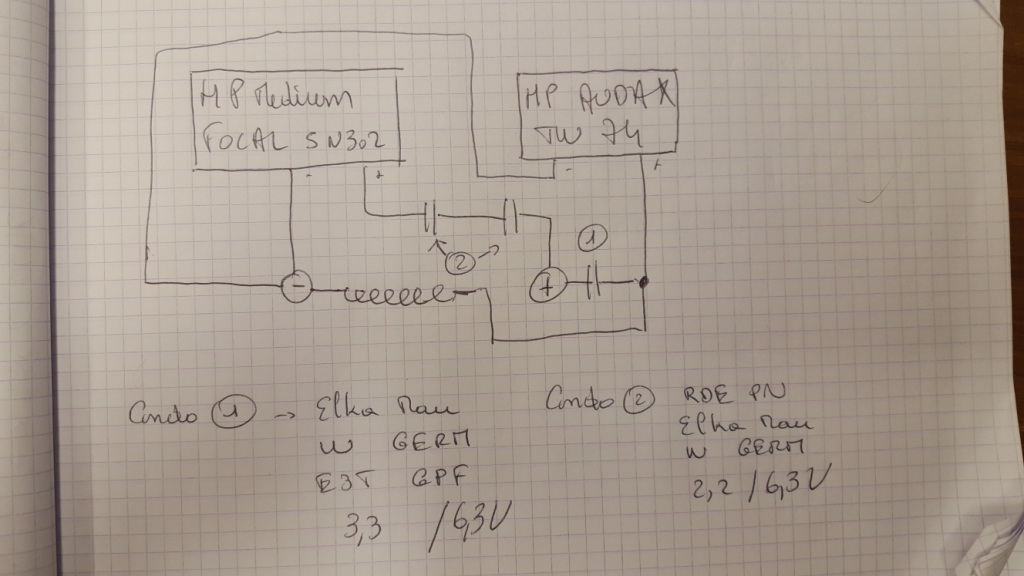 HP Medium
FOCAL 5N302
HP AUDAX
TW 74
-
+
-
+
1
2
-
+
Condo 1 → Elka Mau
W GERM
E3T GPF
3,3 /6,3V
Condo 2 ROE PN
Elka Mau
W GERM
2,2 /6,3V